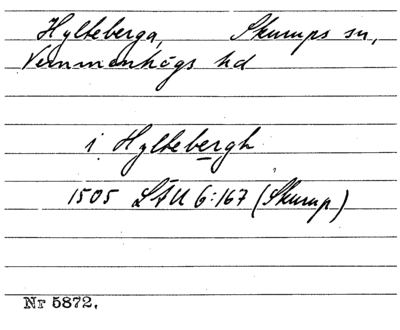 Hylteberga, Skurups sn,
Vemmenhögs hd
i Hyltebergh
1505 LÄU 6:167 (Skurup)
Nr 5872.